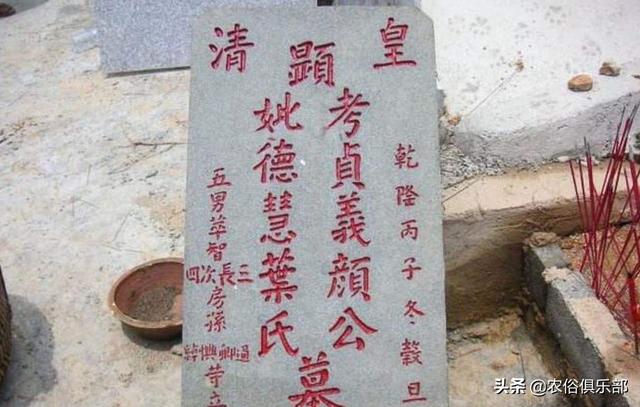 皇清
乾隆丙子冬·穀旦
顯
考貞義顏公
妣德慧葉氏
墓
五男萃智
三長次四
房孫
立
头条@农俗俱乐部